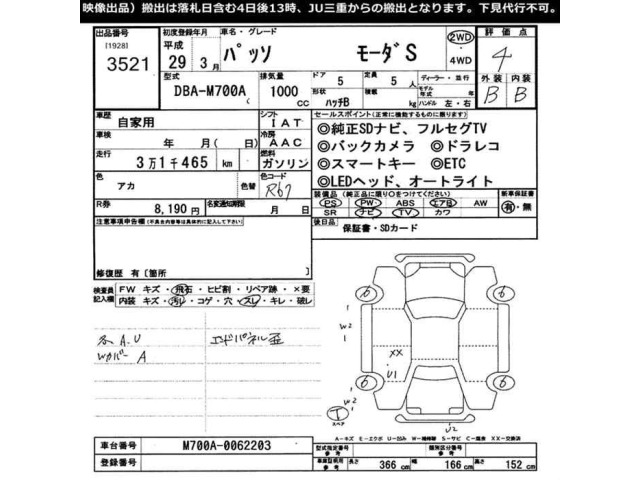 映像出品）搬出は落札日含む4日後13時、JU三重からの搬出となります。下見代行不可。
出品番号 初度登録年月 車名・グレード 2WD 評価点
[1928] 平成 パッソ モーダS 4
3521 29 3月 4WD
型式 排気量 ドア 5 定員 5人 ディーラー・並行 外装 内装
DBA-M700A 1000 cc 形状 ハッチB 積載 kg モデル年式 年 B B
ハンドル 左・右
車歴 自家用 シフト IAT セールスポイント(正常に機能するものに限ります)
車検 年 月(日) 冷房 AAC ◎純正SDナビ、フルセグTV
走行 3万1千465 km 燃料 ガソリン ◎バックカメラ ◎ドラレコ
◎スマートキー ◎ETC
色 アカ 色替 色コード R67 ◎LEDヘッド、オートライト
R券 8,190円 名変通知期限 月 日 装備品(純正品に限り○をつけてください) 新車保証書
PS PW ABS エアB AW 有・無
SR ナビ TV カワ
注意事項申告欄(不具合内容等は具体的に記入して下さい) 後日品 保証書・SDカード
修復歴 有[箇所 ]
検査員記入欄 FW キズ・飛石・ヒビ割・リペア跡・×要
内装 キズ・汚レ・コゲ・穴・スレ・キレ・破レ
各A.U エンドパネル歪
Wカバー A
1
W2
1
XX
U1
W2
1
U2
6 6 6 6
スペア
A－キズ E－エクボ U－凹み W－補修跡 S－サビ C－腐食 XX－交換済
車台番号 M700A-0062203 型式指定番号 参考 類別区分番号 参考
登録番号 車車証明用 参考 長さ 366 cm 幅 166 cm 高さ 152 cm